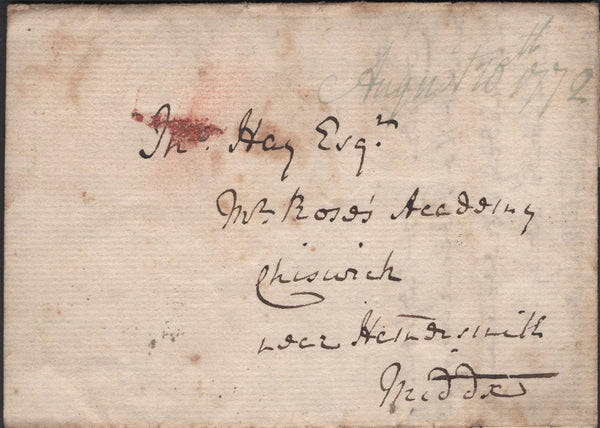 August 18th 1772
Tho. Hay Esqr.
Mr. Rose's Academy
Chiswick
near Hammersmith
Middx